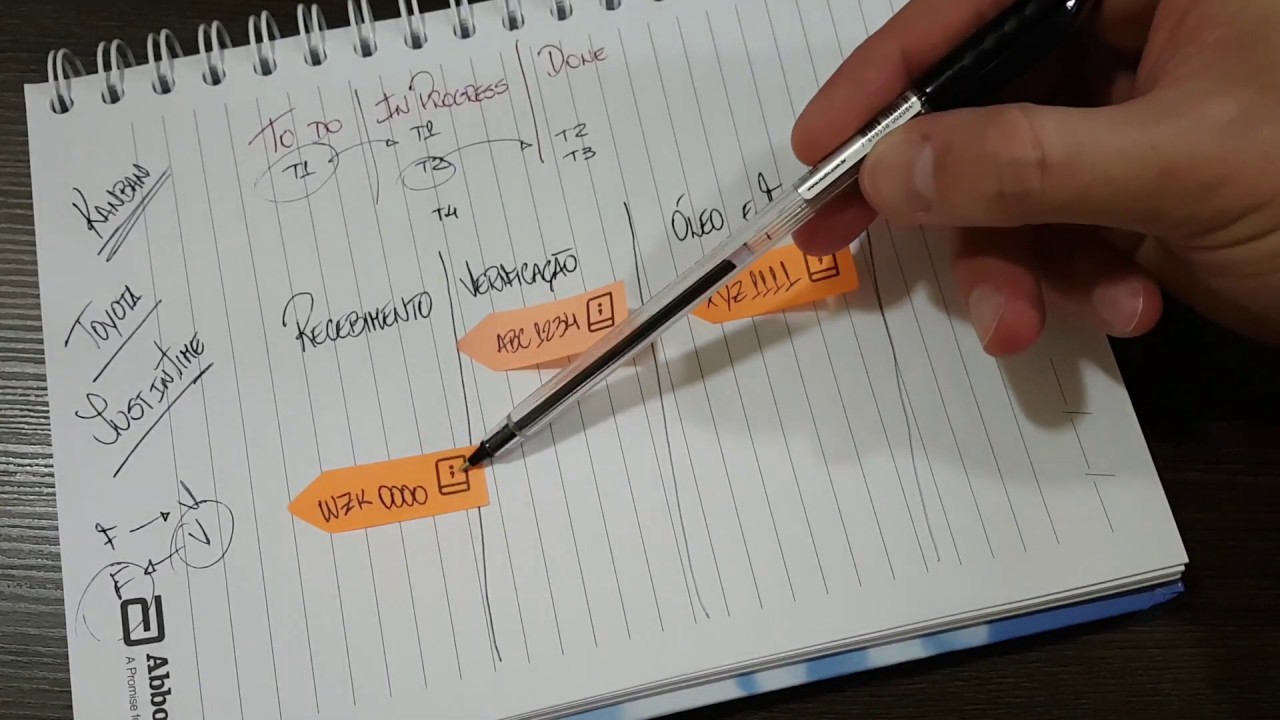 TO DO
IN PROGRESS
DONE
T1
T1
T2
T2
T3
T4
KANBAN
TOYOTA
JUST IN TIME
RECEBIMENTO
VERIFICAÇÃO
ÓLEO
ABC 1234
XYZ 1111
WZK 0000
V
F
Abbo
A Promise f